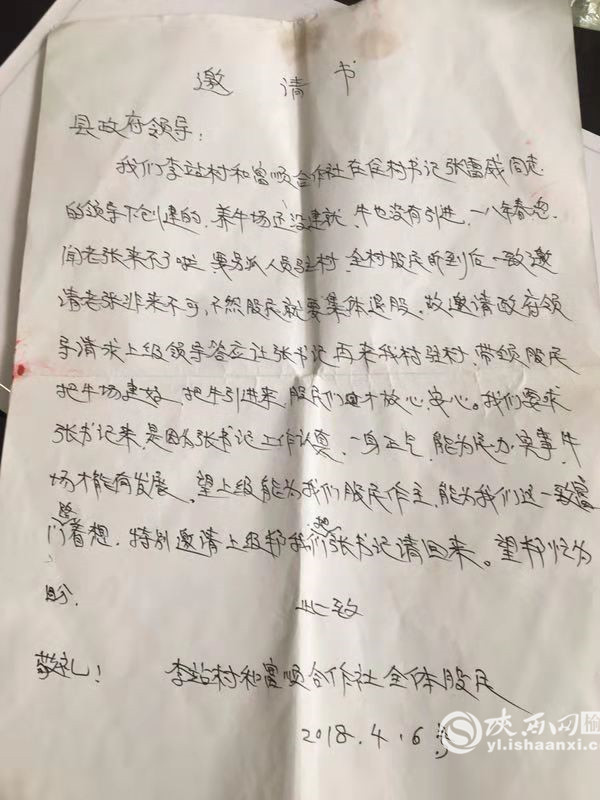 邀请书
县政府领导：
我们李站村和富顺合作社在住村书记张雷威同志
的领导下创建的，养牛场还没建就，牛也没有引进，一八年春忽
闻老张来不了啦 要另派人员驻村，全村股民听到后一致邀
请老张非来不可，不然股民就要集体退股。故邀请政府领
导请求上级领导答应让张书记再来我村驻村，带领股民
把牛场建好 把牛引进来，股民们才放心，安心。我们要求
张书记来，是因为张书记工作认真，一身正气，能为民办实事，牛
场才能有发展。望上级能为我们股民作主，能为我们这一致富
门路着想，特别邀请上级帮我们把张书记请回来。望帮忙为
盼.
此致
敬礼！
李站村和富顺合作社全体股民
2018.4.6号
陕西网 榆
yl.ishaanxi.c